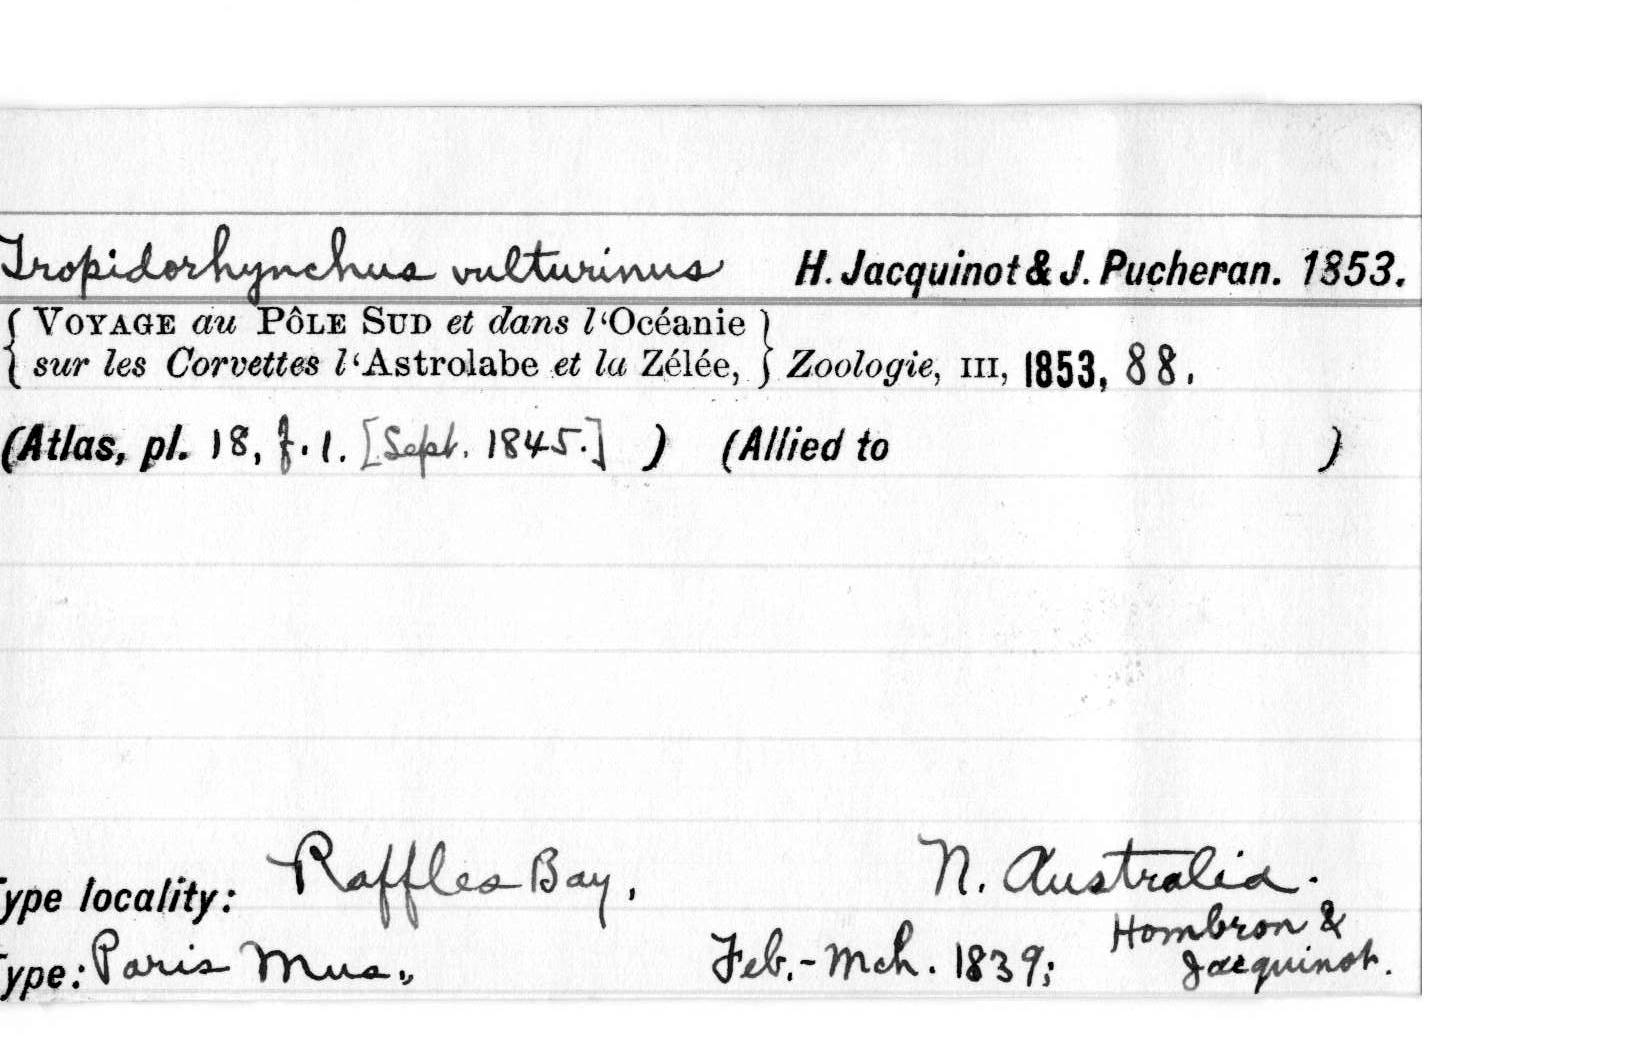 Tropidorhynchus vulturinus H. Jacquinot & J. Pucheran. 1853.
{ VOYAGE au PÔLE SUD et dans l‘Océanie }
{ sur les Corvettes l‘Astrolabe et la Zélée, } Zoologie, III, 1853, 88.
(Atlas, pl. 18, f. 1. [Sept. 1845.] ) (Allied to )
Type locality: Raffles Bay, N. Australia.
Type: Paris Mus., Feb.-Mch. 1839; Hombron &
Jacquinot.